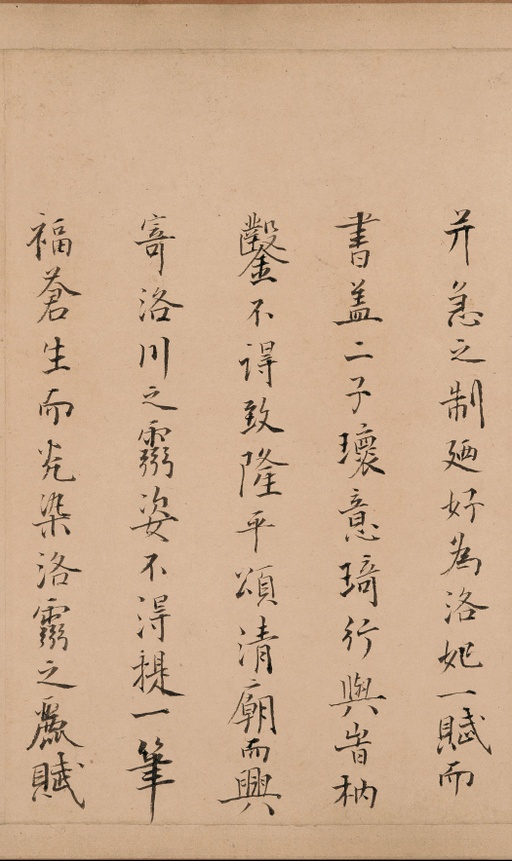 并急之制廼好為洛妃一賦而
書盖二子瓌意琦行與旹枘
鑿不得致隆平頌清廟而興
寄洛川之靈姿不得提一筆
福蒼生而光染洛靈之麗賦